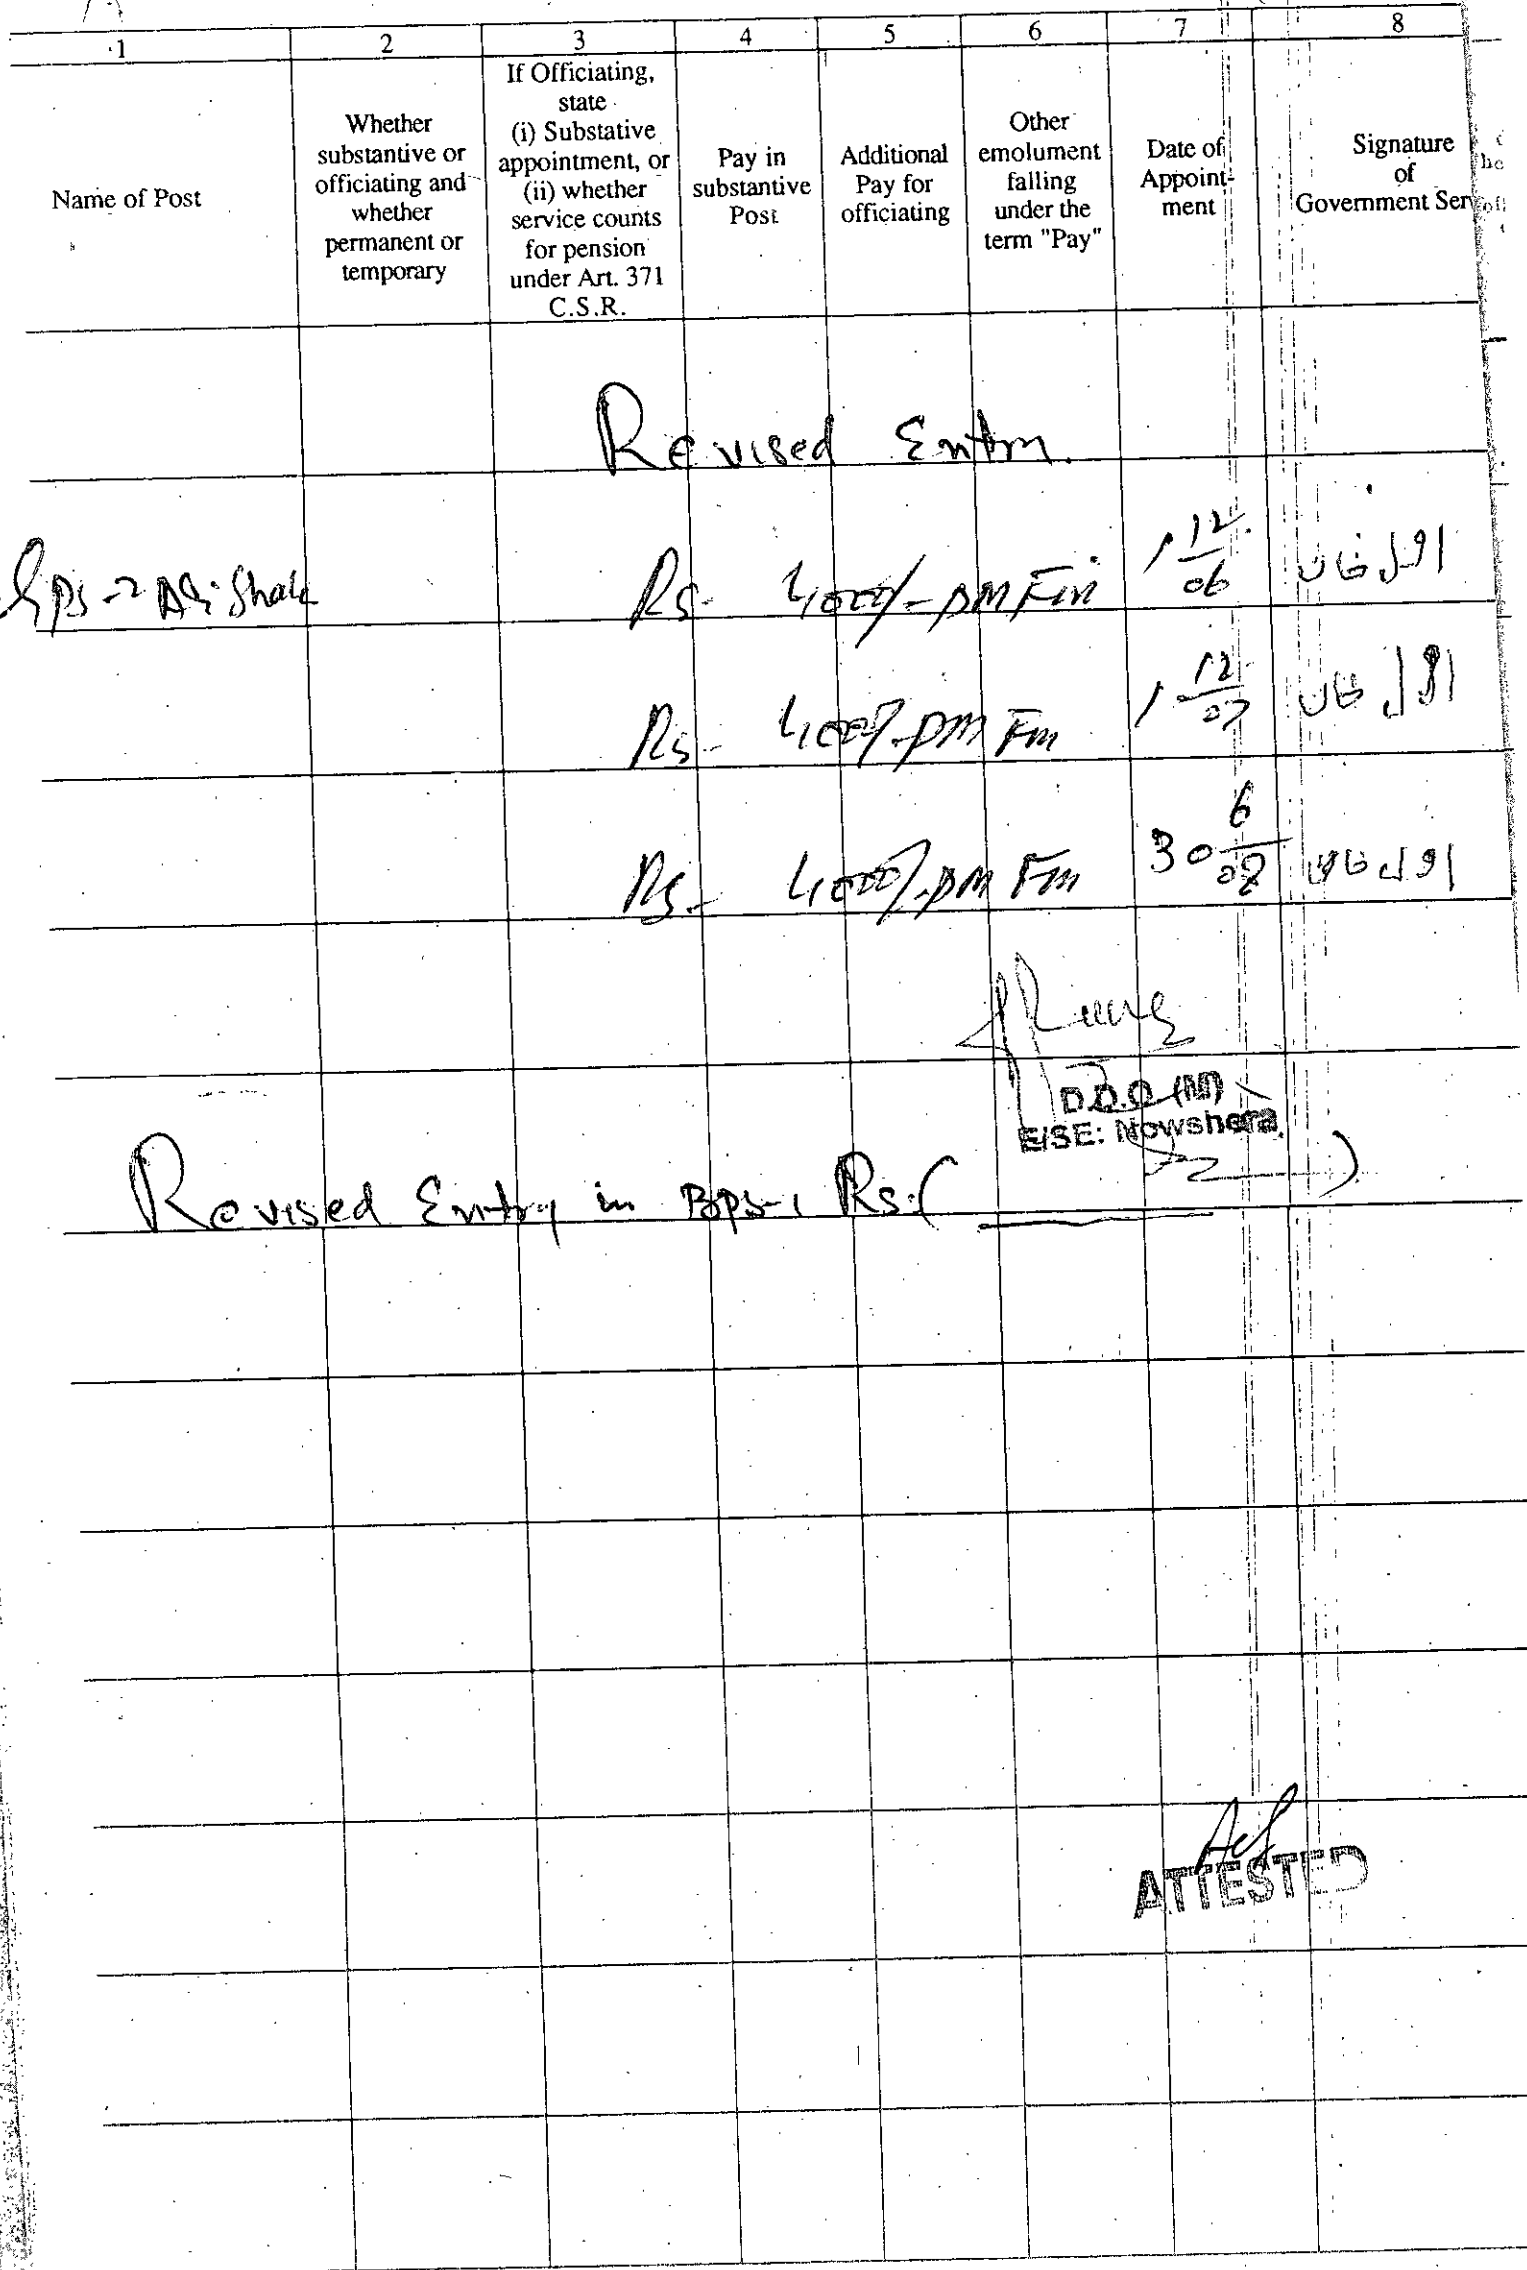 1 2 3 4 5 6 7 8
Name of Post
Whether
substantive or
officiating and
whether
permanent or
temporary
If Officiating,
state
(i) Substative
appointment, or
(ii) whether
service counts
for pension
under Art. 371
C.S.R.
Pay in
substantive
Post
Additional
Pay for
officiating
Other
emolument
falling
under the
term "Pay"
Date of
Appoint-
ment
Signature
of
Government Ser
Revised Entry
Gps-2 Ali Shah Rs- 4000/- pm Fm 1 12/06 اول خان
Rs- 4000/- pm Fm 1 12/07 اول خان
Rs- 4000/- pm Fm 30 6/08 اول خان
D.D.O (M)
E/SE: Nowshera
Revised Entry in Bps-1 Rs. ( )
ATTESTED